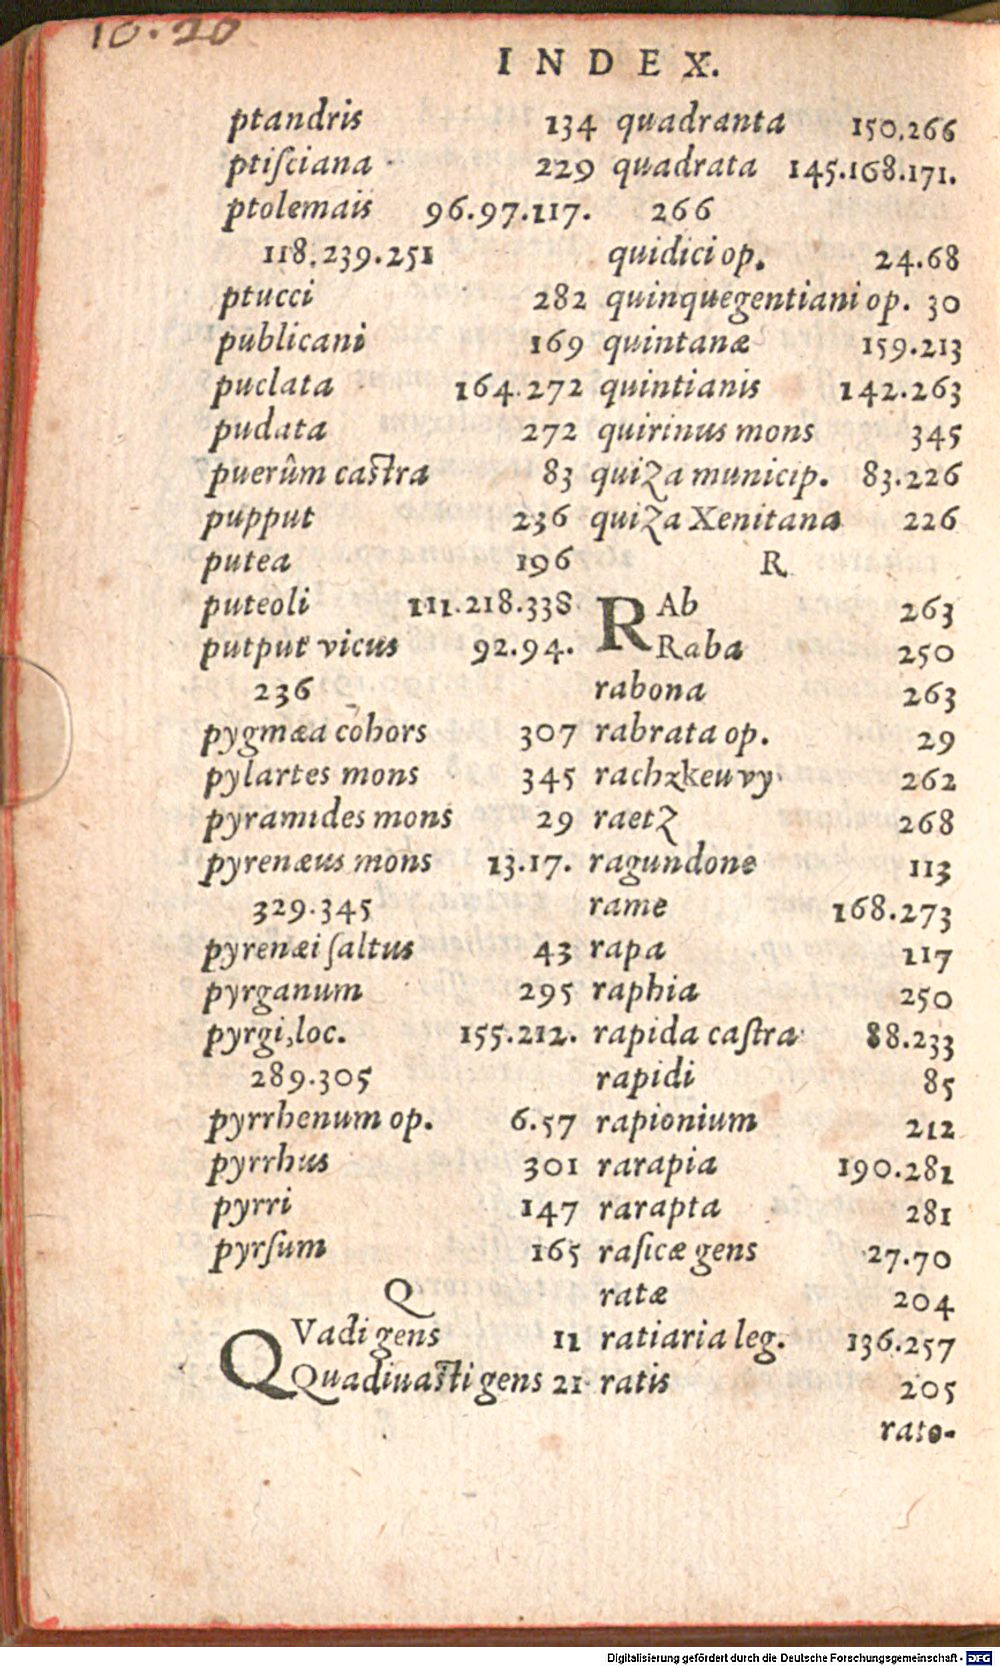 10.20
INDEX.
ptandris 134
ptiſciana 229
ptolemais 96.97.117.
118.239.251
ptucci 282
publicani 169
puclata 164.272
pudata 272
puerûm caſtra 83
pupput 236
putea 196
puteoli 111.218.338
putput vicus 92.94.
236
pygmæa cohors 307
pylartes mons 345
pyramides mons 29
pyrenæus mons 13.17.
329.345
pyrenæi ſaltus 43
pyrganum 295
pyrgi,loc. 155.212.
289.305
pyrrhenum op. 6.57
pyrrhus 301
pyrri 147
pyrſum 165
Q
QVadi gens 11
Quadiuaſti gens 21
quadranta 150.266
quadrata 145.168.171.
266
quidici op. 24.68
quinquegentiani op. 30
quintanæ 159.213
quintianis 142.263
quirinus mons 345
quiza municip. 83.226
quiza Xenitana 226
R
RAb 263
Raba 250
rabona 263
rabrata op. 29
262
raetz 268
ragundone 113
rame 168.273
rapa 117
raphia 250
rapida caſtra 88.233
rapidi 85
rapionium 212
rarapia 190.281
rarapta 281
raſicæ gens 27.70
ratæ 204
ratiaria leg. 136.257
ratis 205
rato-
Digitalisierung gefördert durch die Deutsche Forschungsgemeinschaft - DFG